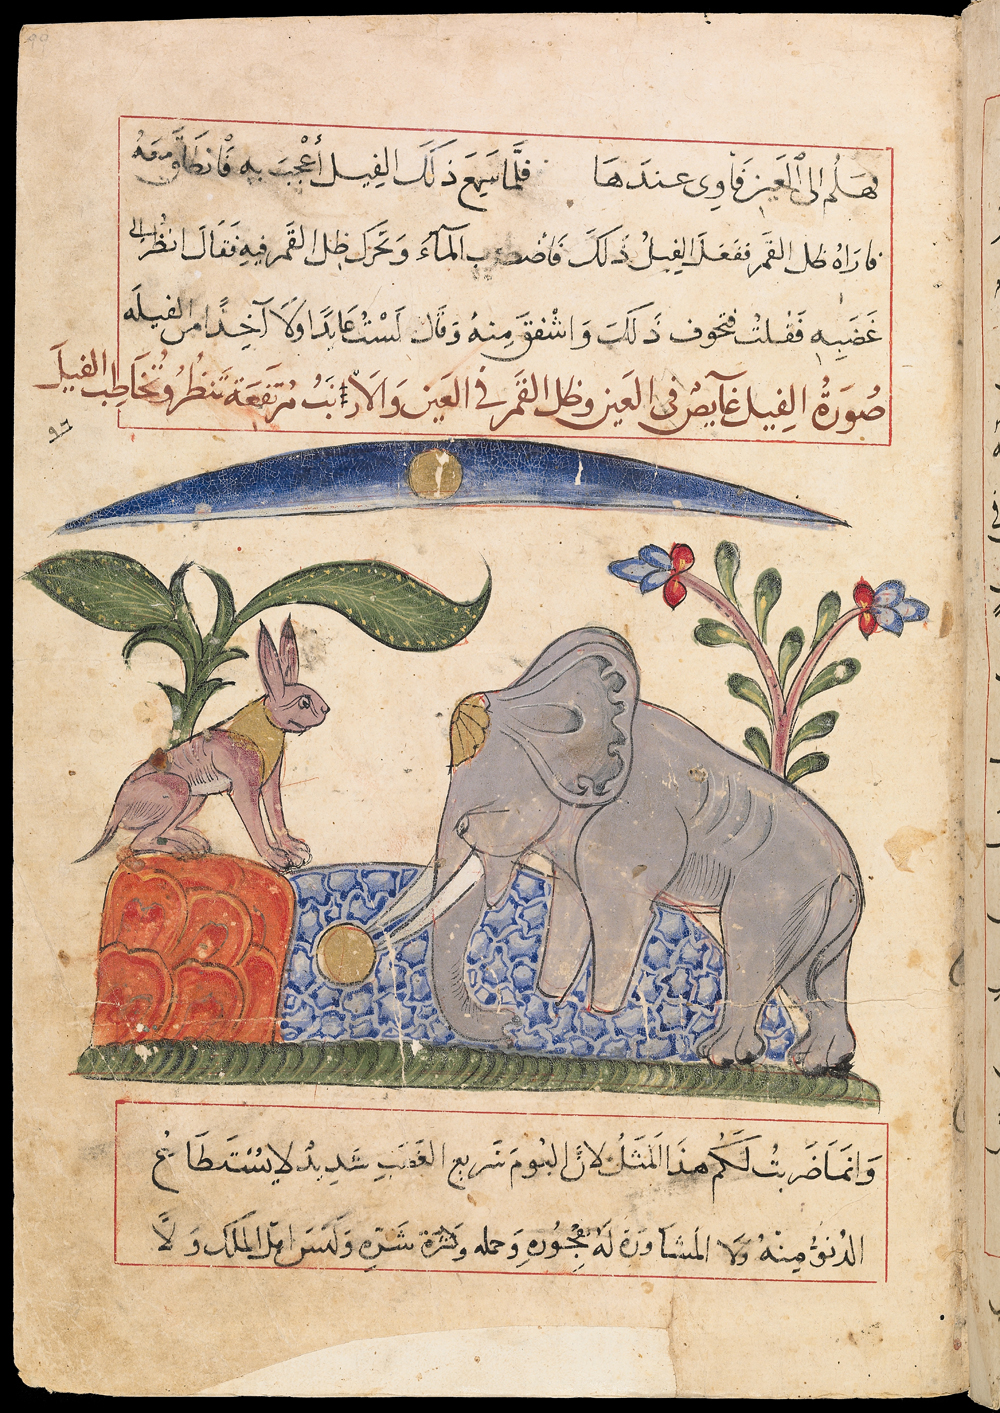 فهلم الى العين فاوى عندها فلَّما سَمِعَ ذَلَكَ الفِيل أعْجبَ بِهِ فَانطَلقَ مَعَهُ
فارَاهُ ظل القَمر ففَعَلَ الفِيلُ ذَلكَ فَاضطرب المآءَ وَتحَرك ظِل القَمر فيهِ فَقَالَ انظُر الى
غَضَبِهِ فَفَعلت ذَلكَ وَاشْفقَ مِنهُ وَقالَ لَسْتُ عَايدًا وَلَا آخِذًا من الفيلَه
صُورَةُ الفِيل غآيصُ فى العَين وظل القَمَر فى العَين وَالارنَبُ مُرتَفعَة تَنظُر وتُخَاطِب الفيلَ
وَانمَا ضَربتُ لَكُم هذَا المَثَلُ لانَّ البُومَ سَريع الغَضَب شَدِيدٌ لا يُسْتَطَاعُ
الدُنوُ مِنهُ وَلا المَشَاوَرَة لَهُ وَكَثرَة شَرّهِ وَلَيْسَ اهْل المُلك وَلَا